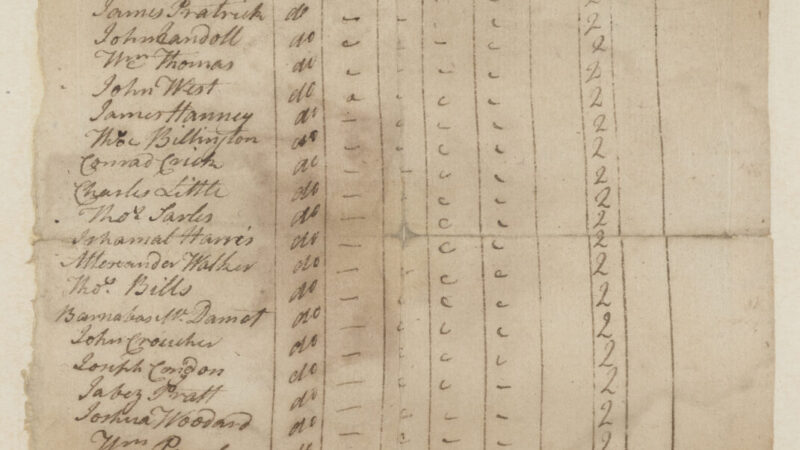 James Pratrick do 2
John Candoll do 2
Wm Thomas do 2
John West do 2
James Hanney do 2
Thoe Billington do 2
Conrad do 2
Charles Little do 2
Thos Sarles do 2
Ishamal Harris do 2
Allexander Walker do 2
Thos. Bills do 2
Barnabas Mc Damot do 2
John Croucher do 2
Joseph Condon do 2
Jabez Pratt do 2
Joshua Woodard do 2
Wm do 2